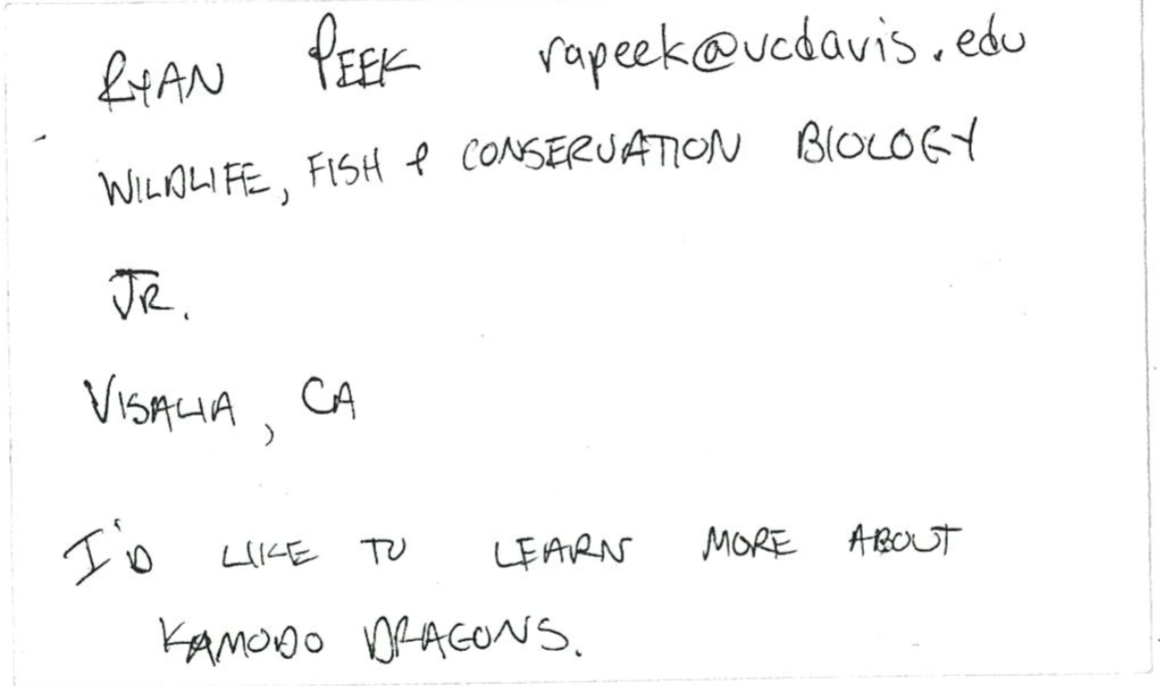 RYAN PEEK rapeek@ucdavis.edu
WILDLIFE, FISH & CONSERVATION BIOLOGY
JR.
VISALIA, CA
I'D LIKE TO LEARN MORE ABOUT
KAMODO DRAGONS.